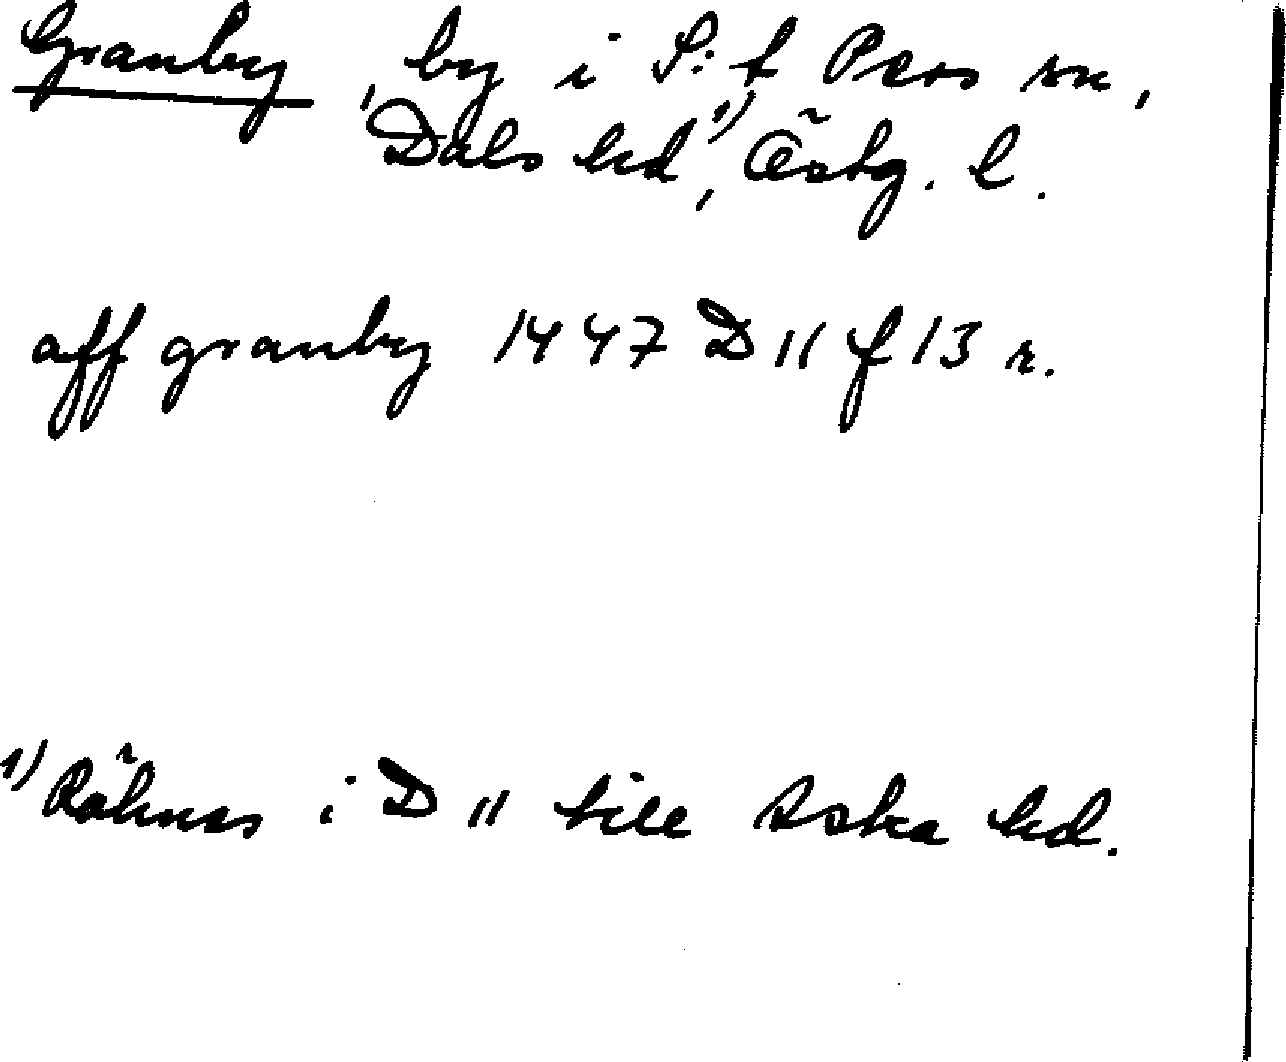 Granby, by i S:t Pers sn,
Dals hd,¹⁾ Östg. l.
aff granby 1447 D 11 f 13 r.
¹⁾ Räknas i D 11 till Aska hd.